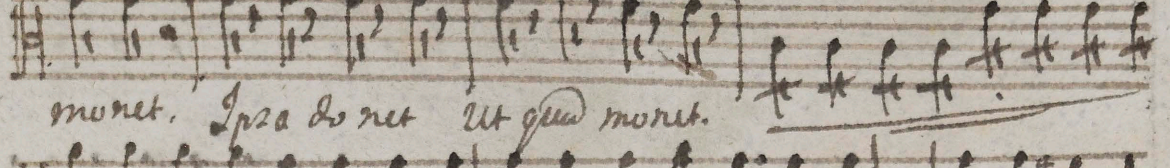 monet. Ipsa do net Ut quod monet.